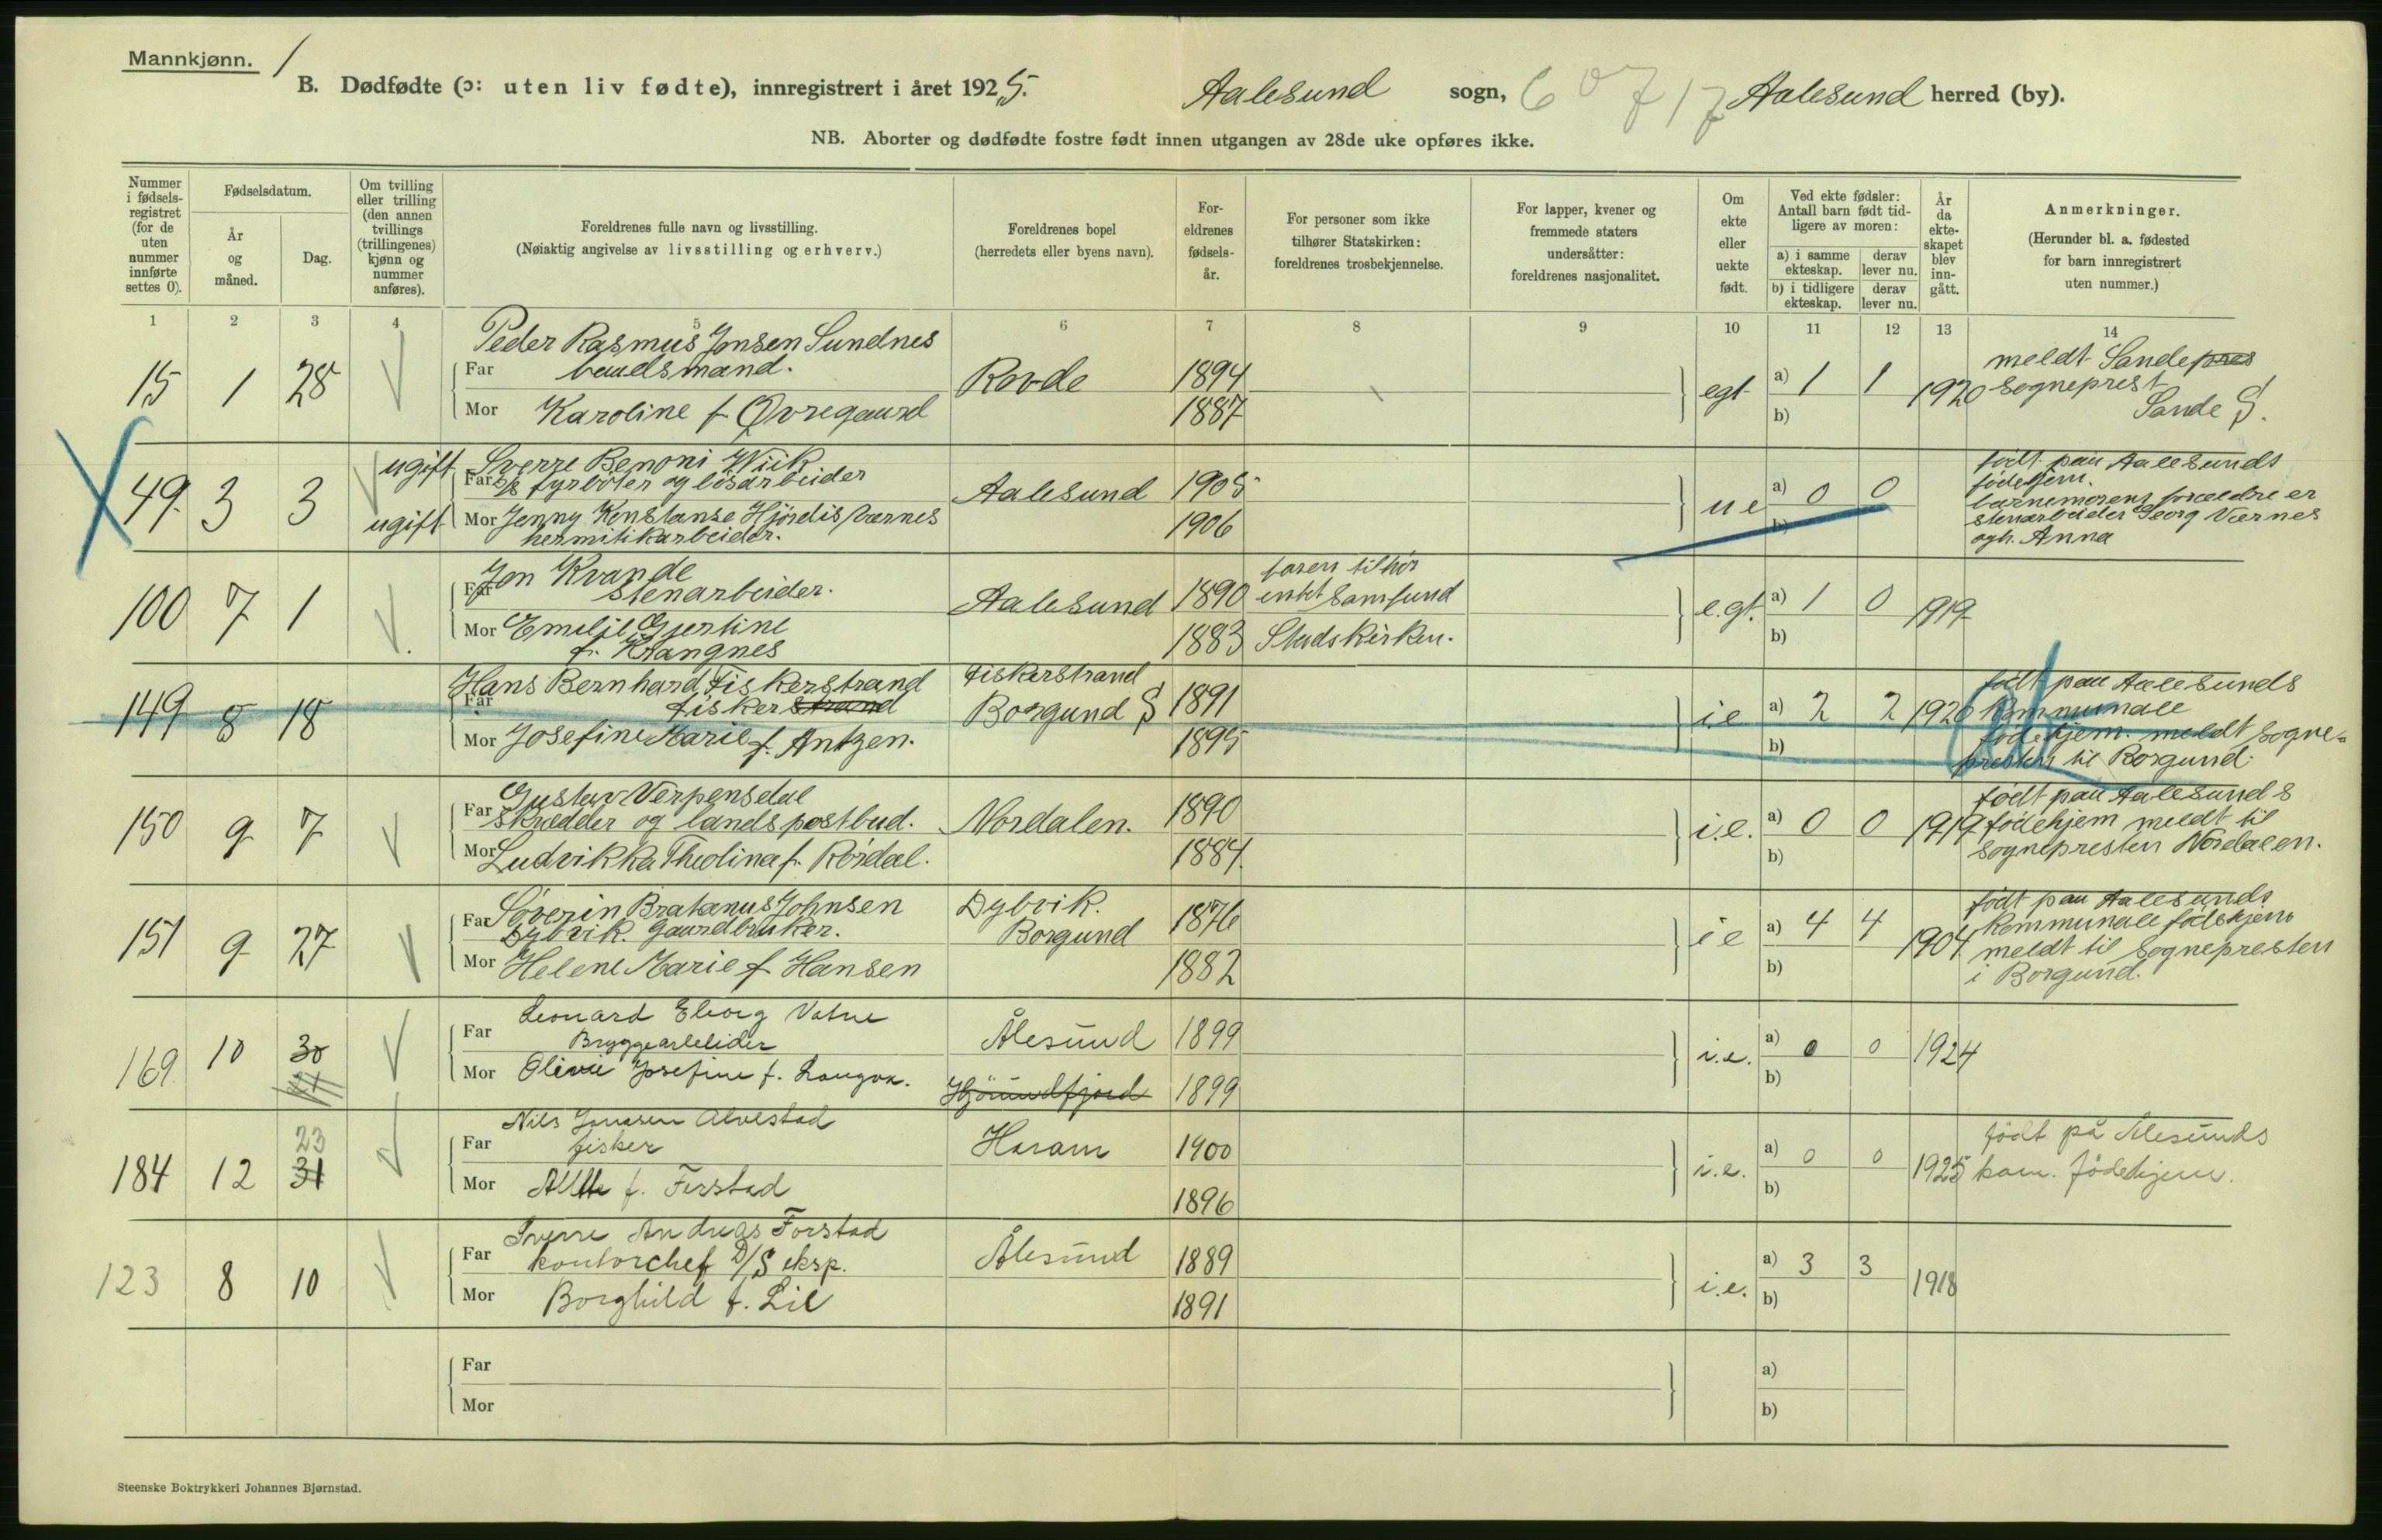 Mannkjønn. 1
B. Dødfødte (ɔ: uten liv fødte), innregistrert i året 1925. Aalesund sogn, Aalesund herred (by).
NB. Aborter og dødfødte fostre født innen utgangen av 28de uke opføres ikke.
Nummer i fødsels-registret (for de uten nummer innførte settes 0).
Fødselsdatum.
År og måned.
Dag.
Om tvilling eller trilling (den annen tvillings (trillingenes) kjønn og nummer anføres).
Foreldrenes fulle navn og livsstilling.
(Nøiaktig angivelse av livsstilling og erhverv.)
Foreldrenes bopel
(herredets eller byens navn).
For-eldrenes fødsels-år.
For personer som ikke tilhører Statskirken: foreldrenes trosbekjennelse.
For lapper, kvener og fremmede staters undersåtter: foreldrenes nasjonalitet.
Om ekte eller uekte født.
Ved ekte fødsler: Antall barn født tid-ligere av moren:
a) i samme ekteskap. derav lever nu.
b) i tidligere ekteskap. derav lever nu.
År da ekte-skapet blev inn-gått.
Anmerkninger.
(Herunder bl. a. fødested for barn innregistrert uten nummer.)
1 2 3 4 5 6 7 8 9 10 11 12 13 14
Peder Rasmus Jonsen Sundnes
15 1 28 Far baadsmand. Rovde 1894 egt a) 1 1 1920 meldt Sande pres
Mor Karoline f. Øvregaard 1887 b) sogneprest
Sande S.
49 3 3 ugift Far Sverre Benoni Wiik
fyrbøter og løsarbeider Aalesund 1905 ue a) 0 0 født paa Aalesunds
fødehjem.
ugift Mor Jenny Konstanse Hjørdis Værnes 1906 b) barnemorens forældre er
hermitikarbeider. stenarbeider Georg Værnes
ogh. Anna
100 7 1 Far Jon Kvande
stenarbeider. Aalesund 1890 faren tilhør
intet samfund e.gt. a) 1 0 1919
Mor Emelie Gjertine 1883 Statskirken. b)
f. Krangnes
149 8 18 Hans Bernhard Fiskerstrand Fiskerstrand
Far fisker strand Borgund S 1891 i.e a) 2 2 1920 født paa Aalesunds
kommunale
Mor Josefine Marie f. Antzen. 1895 b) fødehjem. meldt sogne-
presten til Borgund.
150 9 7 Far Gustav Verpensdal
skrædder og landspostbud. Nordalen. 1890 i.e. a) 0 0 1919 født paa Aalesunds
fødehjem meldt til
Mor Ludvikka Theolina f. Rørdal. 1884. b) sognepresten Nordalen.
151 9 27 Far Søverin Bratanus Johnsen Dybvik.
Dybvik. Gaardbruker. Borgund 1876 i e a) 4 4 1904 født paa Aalesunds
kommunale fødehjem
Mor Helene Marie f. Hansen 1882 b) meldt til sognepresten
i Borgund.
169 10 30 Far Leonard Vatne
Bryggearbeider Ålesund 1899 i.e. a) 0 0 1924
Mor Olivie Josefine f. Langva. Hjörundfjord 1899 b)
184 12 23 31 Far Nils Jonasen Alvestad
fisker Haram 1900 i.e. a) 0 0 1925 født på Ålesunds
kom. fødehjem.
Mor f. Ferstad 1896 b)
123 8 10 Far Sverre Andreas Forstad
kontorchef D/S eksp. Ålesund 1889 i.e. a) 3 3 1918
Mor Borghild f. Lie 1891 b)
Far a)
Mor b)
Steenske Boktrykkeri Johannes Bjørnstad.